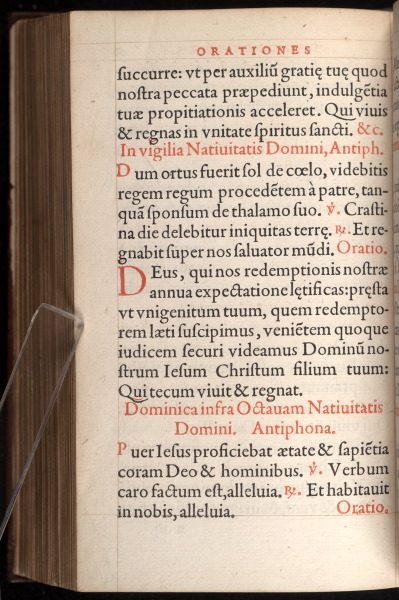 ORATIONES
ſuccurre: vt per auxiliū gratię tuę quod
noſtra peccata præpediunt, indulgētia
tuæ propitiationis acceleret. Qui viuis
& regnas in vnitate ſpiritus ſancti. &c.
In vigilia Natiuitatis Domini, Antiph.
Dum ortus fuerit ſol de cœlo, videbitis
regem regum procedētem à patre, tan-
quā ſponſum de thalamo ſuo. ℣. Craſti-
na die delebitur iniquitas terrę. ℟. Et re-
gnabit ſuper nos ſaluator mūdi. Oratio.
DEus, qui nos redemptionis noſtræ
annua expectatione lętificas: pręſta
vt vnigenitum tuum, quem redempto-
rem læti ſuſcipimus, veniētem quoque
iudicem ſecuri videamus Dominū no-
ſtrum Ieſum Chriſtum filium tuum:
Qui tecum viuit & regnat.
Dominica infra Octauam Natiuitatis
Domini. Antiphona.
Puer Ieſus proficiebat ætate & ſapiētia
coram Deo & hominibus. ℣. Verbum
caro factum eſt, alleluia. ℟. Et habitauit
in nobis, alleluia. Oratio.